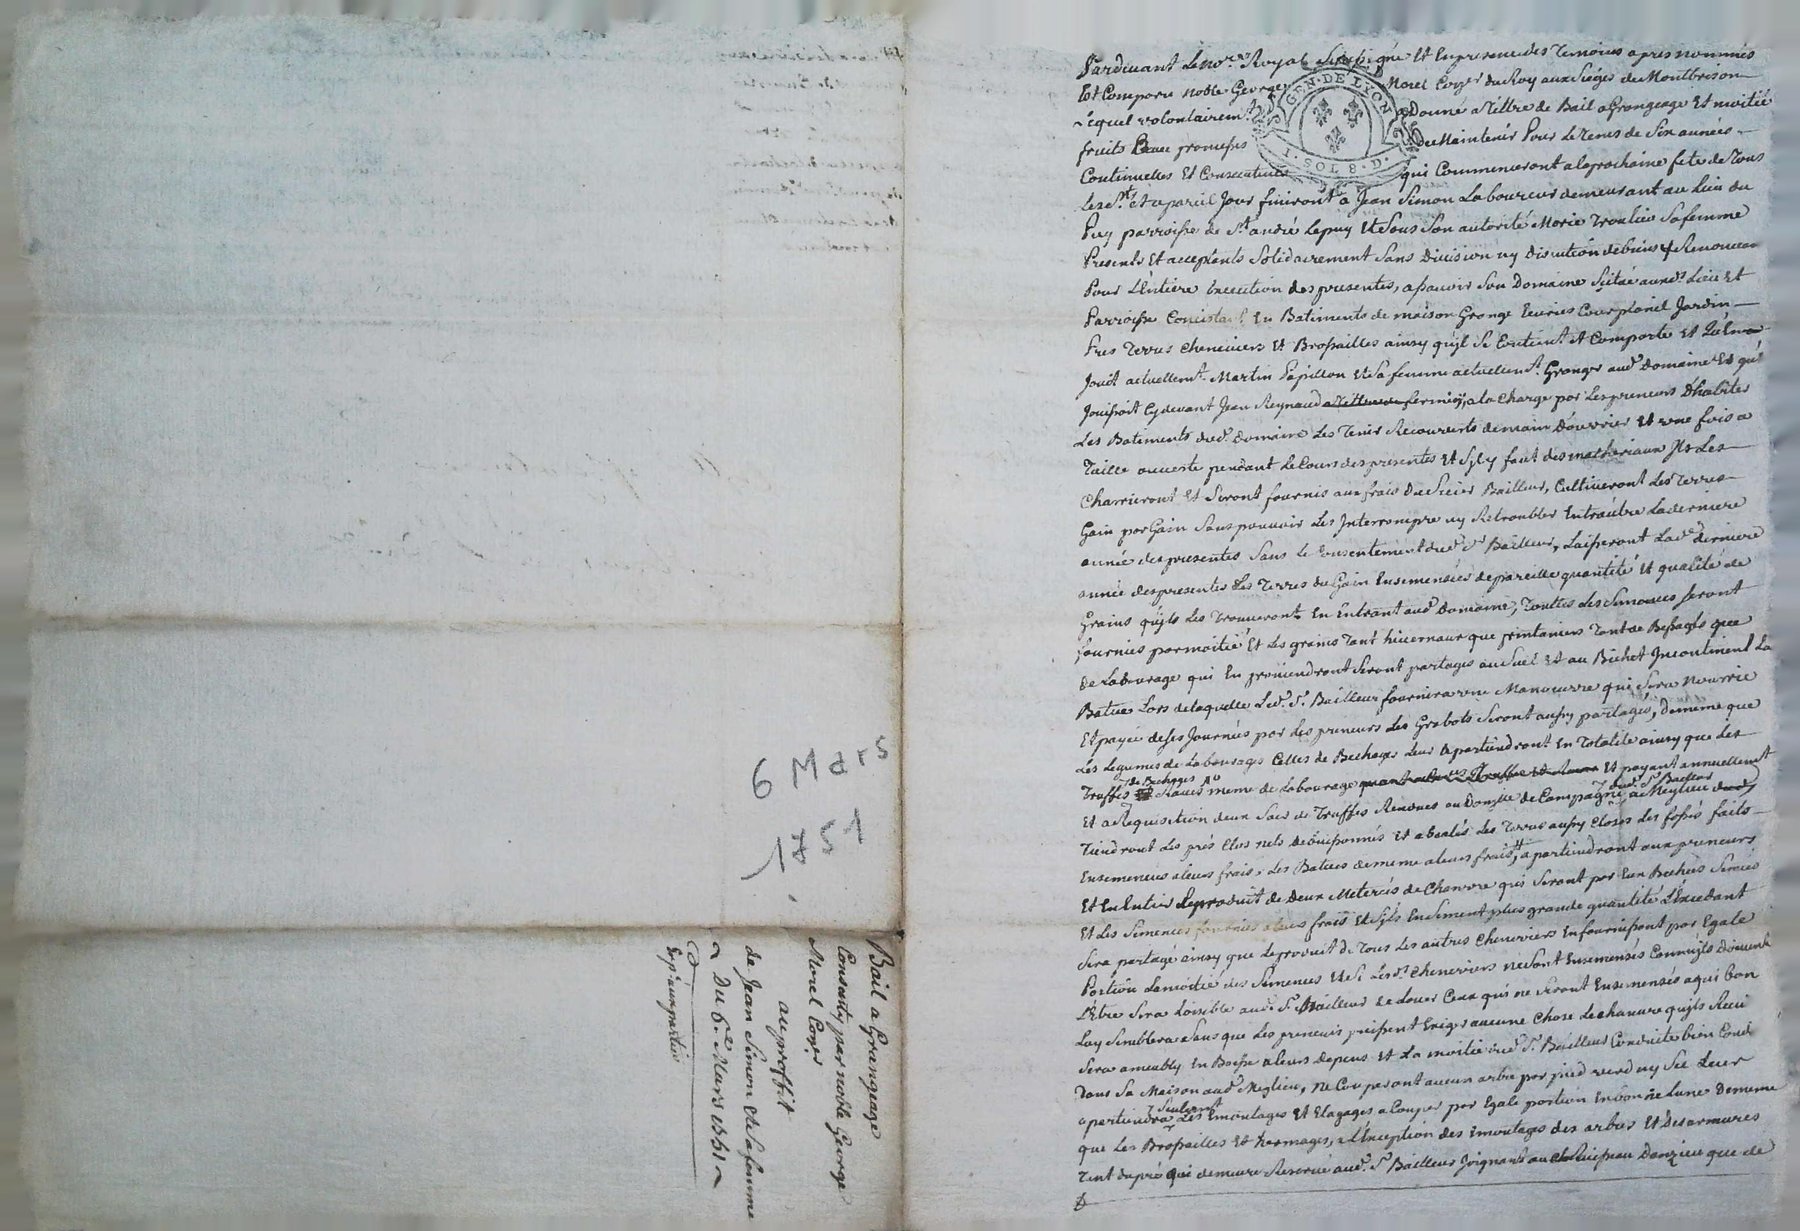 6 Mars
1751
Bail a Grangeage
Consenty par noble George
Morel Coner
au proffit
de Jean Simon et sa femme
Du 6e Mars 1751
Expédié au partie
GEN · DE LYON
I · SOL 8 · D ·
Pardevant Le no.re Royal Soussigné Et En presence des Temoins apres nommés
Est Comparu noble George Morel Coner du Roy aux Siéges de Montbrison
Lequel volontairemt a Donné a Tiltre de Bail a Grangeage Et moitié
fruits avec promesses de Maintenir Pour Le Tems de Six années
Continuelles Et Consecutives qui Commenceront a la prochaine fete de Tous
les Sts et a pareil Jour finiront a Jean Simon Laboureur demeurant au Lieu du
Puy parroisse de St andré Lepuy Et Sous Son autorité Marie Sa femme
Presents Et acceptants Solidairement Sans Division ny discution de biens y Renonceant
Pour L'Entiere Execution des presentes, a sçavoir Son Domaine Scitué aud. Lieu Et
Parroisse Concistant En Batiments de maison Grange Ecuries Cour Jardin
Prés Terres Cheneviers Et Brossailles ainsy qu'jl Se Contient Et Comporte Et
Jouit actuellemt Martin Papillon Et Sa femme actuellemt Granger aud. Domaine Et qu'en
Jouissoit Cy devant Jean Reynaud fermier, a la Charge par Les preneurs D'habiter
Les Batiments dud. Domaine Les Tenir Recouverts de main D'ouvrier Et une fois a
Taille ouverte pendant Le Cours des presentes Et S'jl y faut des matheriaux Jls Les
Charrieront Et Seront fournis aux frais Du Sieur Bailleur, Cultiveront Les Terres
Gain par Gain Sans pouvoir Les Interrompre ny Retroubler La derniere
année des presentes Sans Le Consentement dud. Sr Bailleur, Laisseront Lad. derniere
année des presentes Les Terres du Gain Ensemencées de pareille quantité Et qualité de
Grains qu'jls Les Trouveront En Entrant aud. Domaine, Toutes Les Semences Seront
fournies par moitié Et Les grains Tant hivernaux que printaniers Tant de Bechages que
de Labourage qui En proviendront Seront partages au Suel Et au Bichet Incontinent La
Batue Lors de laquelle Led. Sr Bailleur fournira une Manoeuvre qui Sera Nourrie
Et payée de Ses Journées par Les preneurs Les Grabots Seront aussy partagés, de meme que
Les Legumes de Labourages Celles de Bechages Leur apartiendront En Totalité ainsy que Les
Truffes de Bechages Raves meme de Labourage Et payant annuellement
Et a Requisition deux Sacs de Truffes Rendues au Domlle de Compagne dud. Sr Bailleur a Meylieu
Tiendront Les prés Clos nets Et abealés Les Terres aussy Closes Les fossés faits
Ensemencés a leurs frais, Les Batues de meme a leurs frais, apartiendront aux preneurs
Et En Entier Le produit de Deux Meterées de Chenevre qui Seront par Eux Bechées Semées
Et Les Semences fournies a leurs frais Et S'jls En Sement plus grande quantité L'Excedant
Sera partagé ainsy que Le produit de Tous Les autres Chenevriers En fournissant par Egale
Portion La moitié des Semences Et Si Lesd. Cheneviers ne Sont Ensemensés Comme jls Doivent
L'Etre Sera Loisible aud. Sr Bailleur de Louer Ceux qui ne Seront Ensemensés a qui bon
Luy Semblera Sans que Les preneurs puissent Exiger aucune Chose Le chanvre qu'jls
Sera a leurs Depens Et La moitié dud. Sr Bailleur Conduite bien Cond.
Dans Sa Maison aud. Meylieu, ne Couperont aucun arbre par pied verd ny Sec Leur
apartiendra Seulemt Les Emontages Et Elagages a Couper par Egale portion En bonne Lune De meme
que Les Brossailles Et hermages, a L'Exception des Emontages des arbres Et
du pré qui demeure Reservé aud. Sr Bailleur Joignant au Ruisseau que de